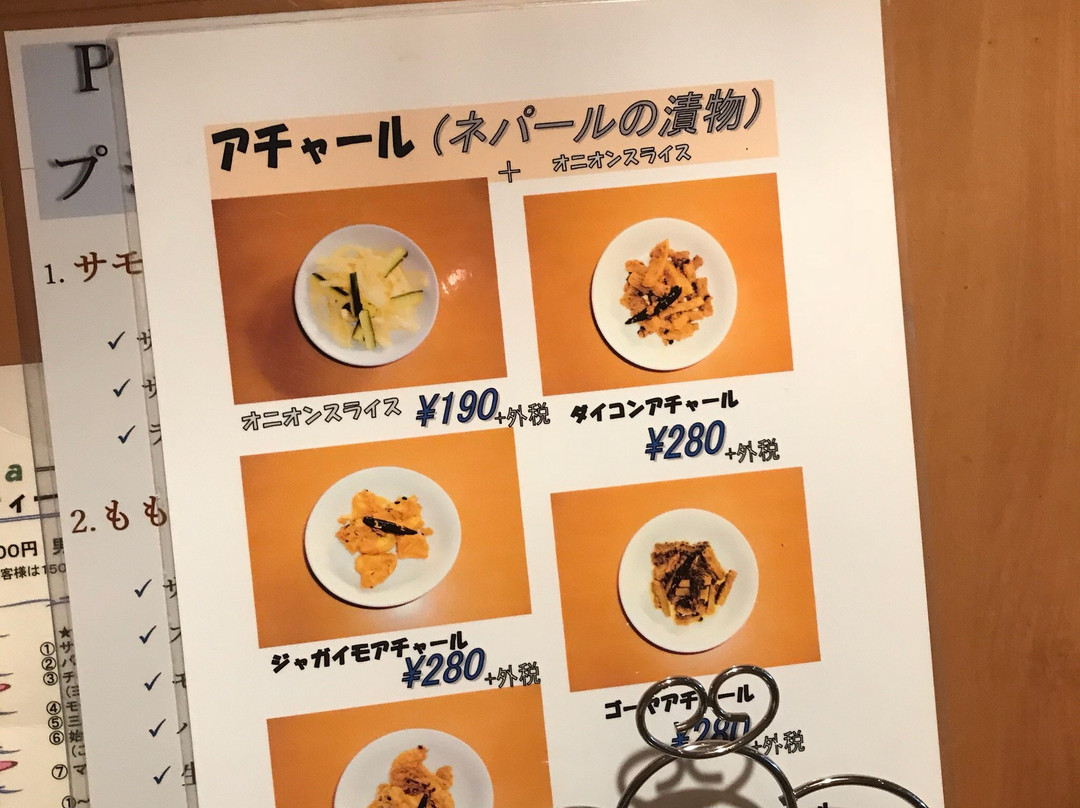 アチャール(ネパールの漬物)
+ オニオンスライス
オニオンスライス ¥190+外税
ダイコンアチャール
¥280+外税
ジャガイモアチャール
¥280+外税
ゴーヤアチャール
¥280+外税
P
プ
1. サモ
✓ サ
✓ サ
✓ ラ
2. もも
a
ィー
00円 男
客様は150
★
① サ
② パ
③ チ
④ モ
⑤ 三
⑥ 始
⑦ マ
①～